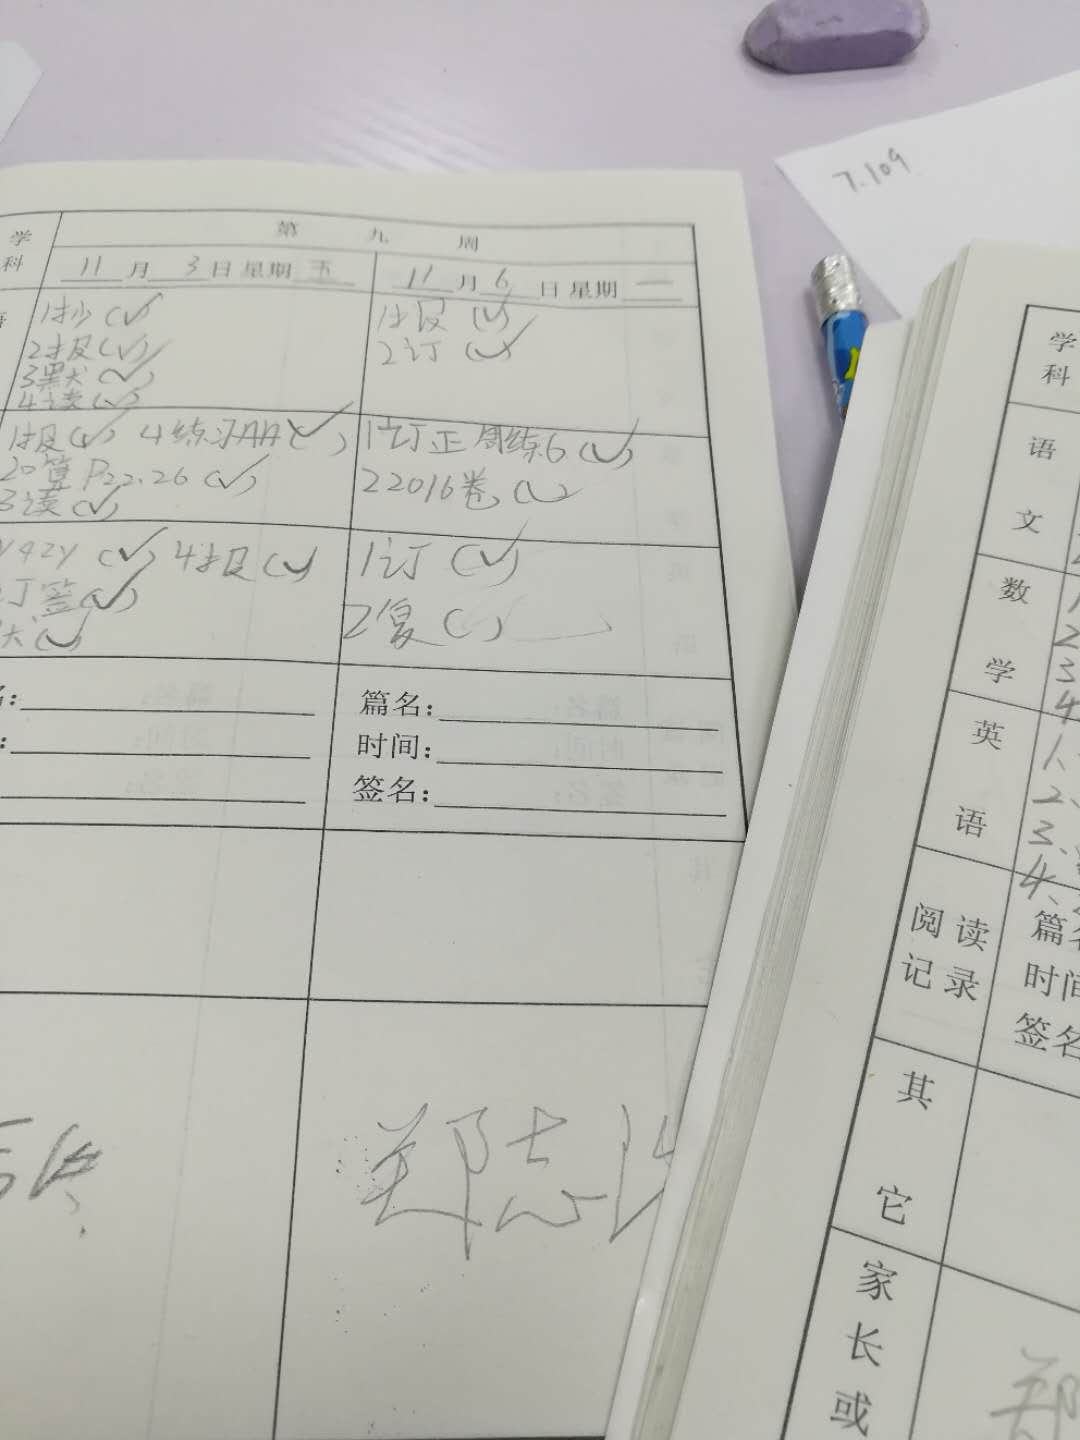 7.109
学科
第九周
11月3日星期五
11月6日星期一
1抄(✓)
2报(✓)
3黑犬(✓)
4读(✓)
1报(✓)
2订(✓)
1报(✓) 4练习AA(✓)
2口算P22.26(✓)
3读(✓)
1订正周练6(✓)
2 2016卷(✓)
(✓) 4报(✓)
订签(✓)
1订(✓)
2复( )
篇名:
时间:
签名:
学科
语文
数学
英语
阅读记录
篇名
时间
签名
其它
家长或
郑志
郑
1
2
3
4
1、
2、
3、
4、